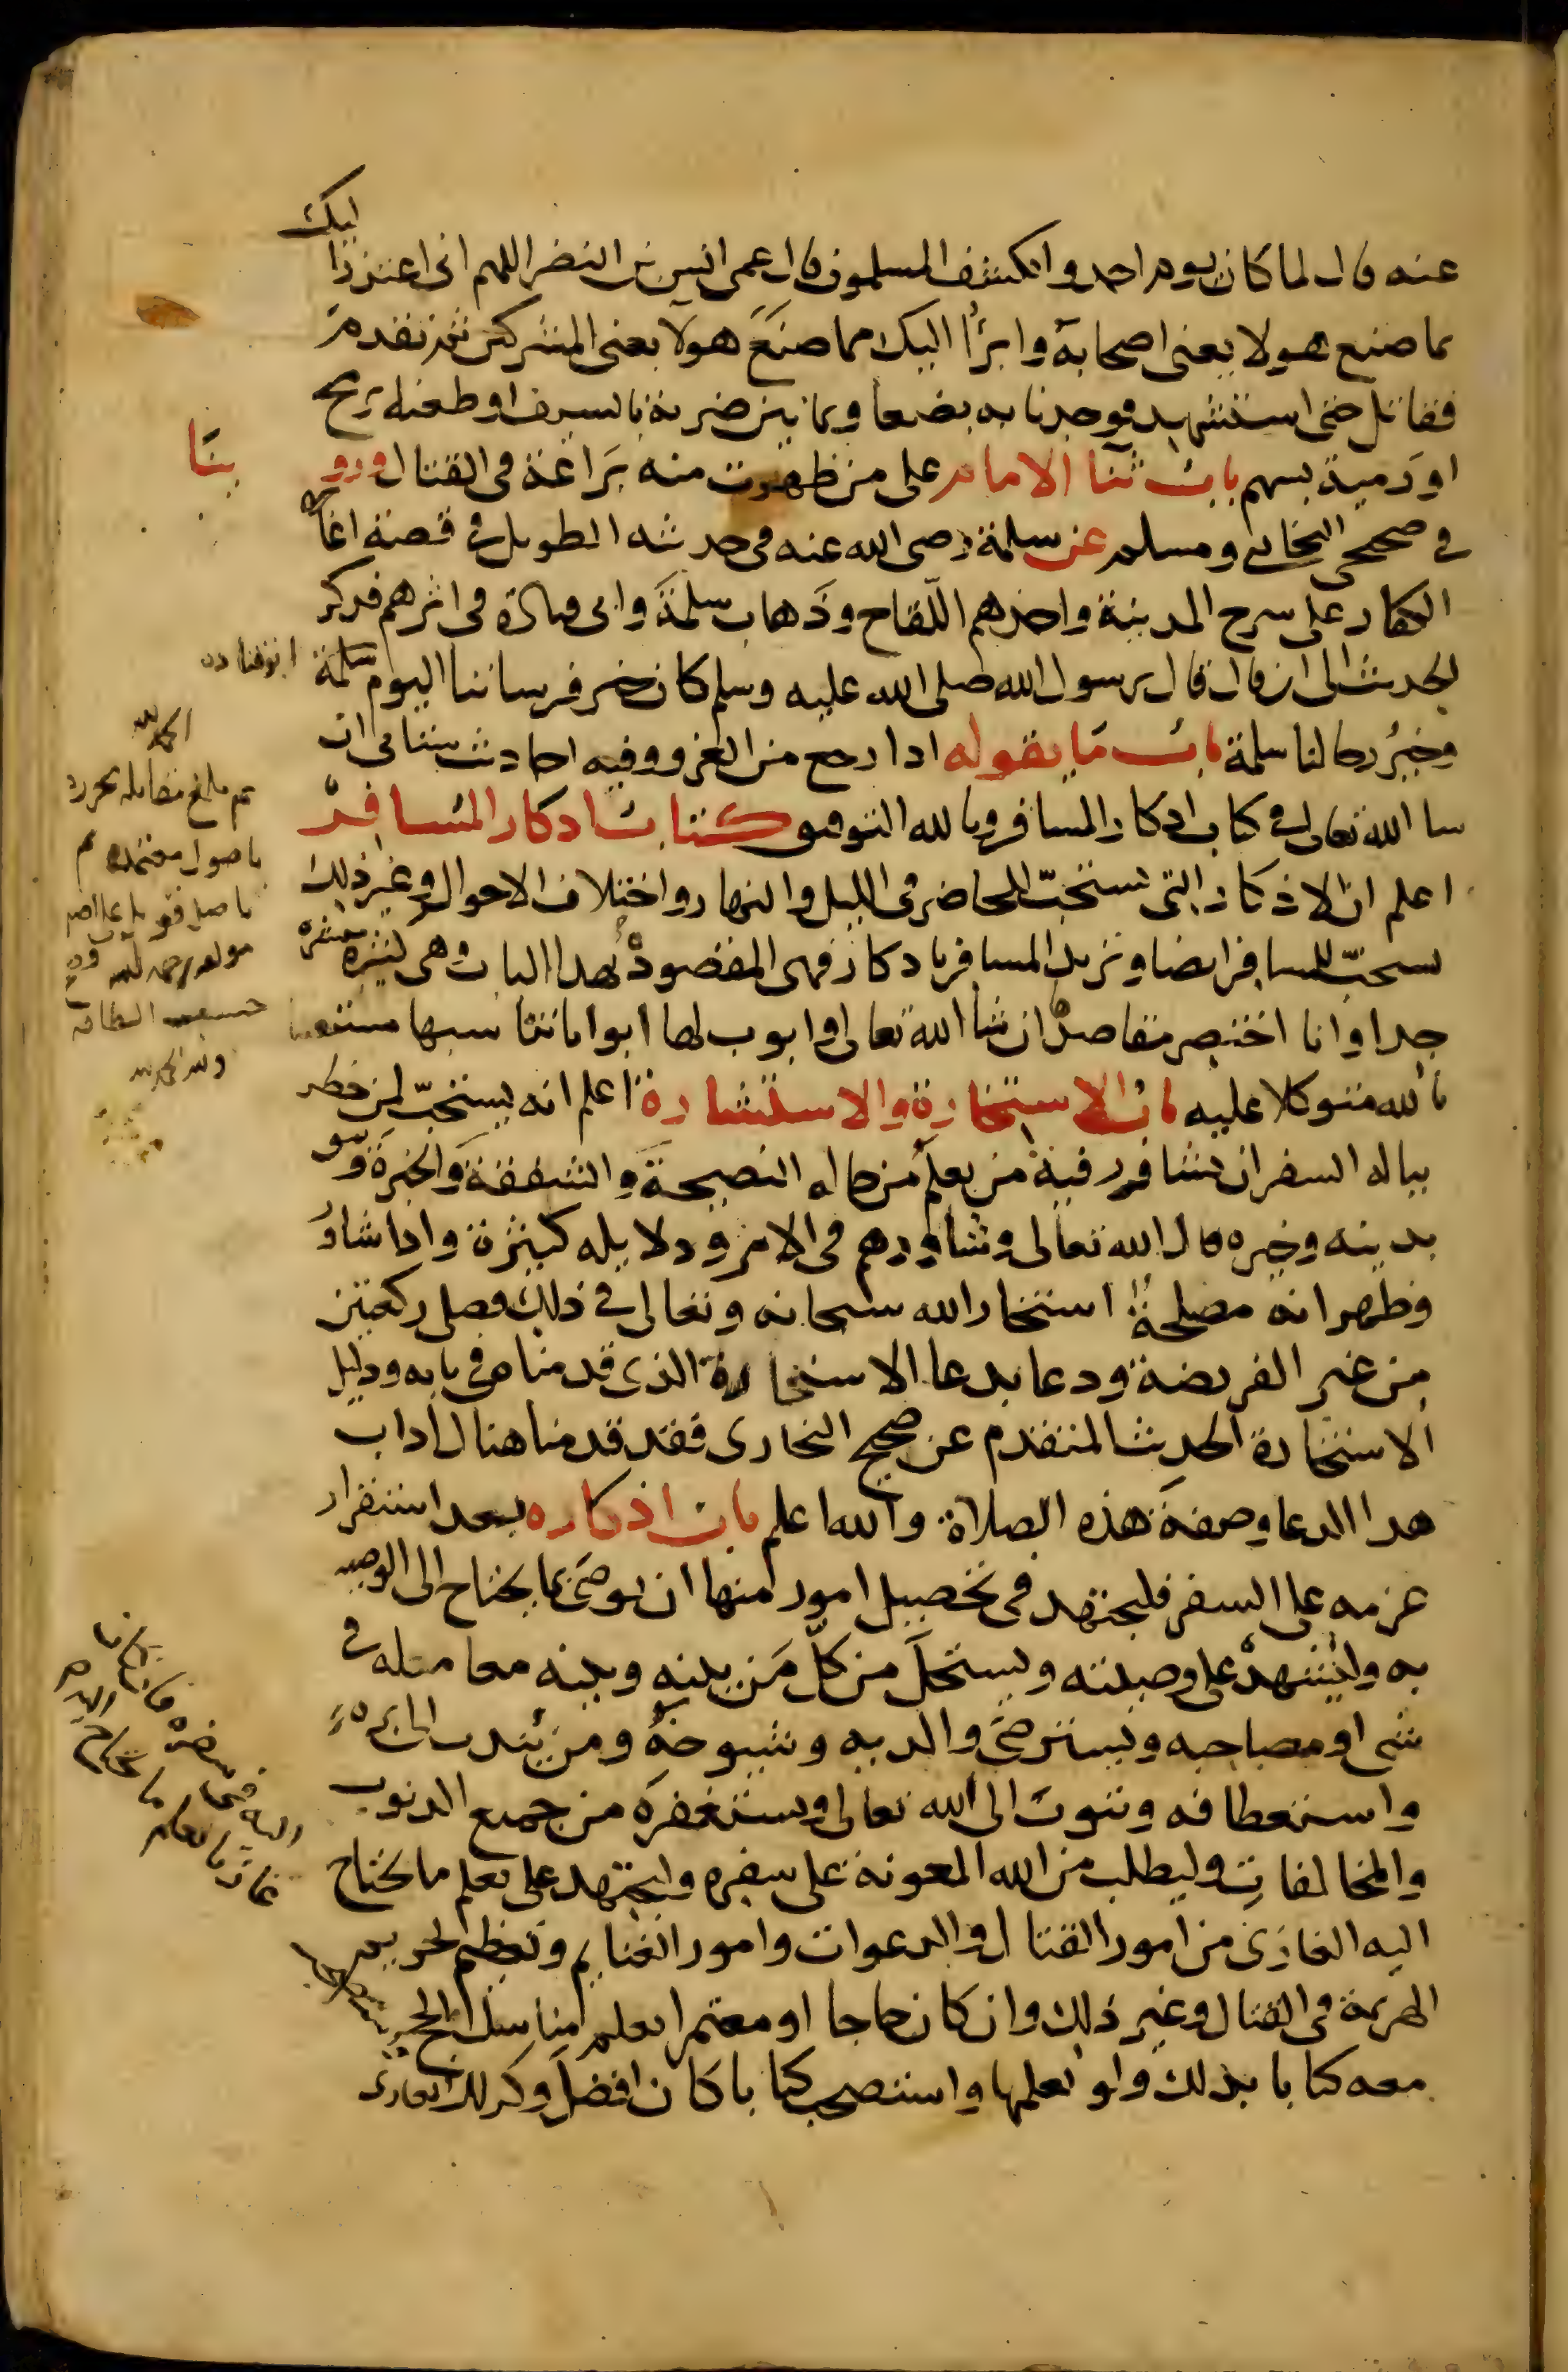 عنه قال لما كان يوم احد وانكشف المسلمون قال عمى انس بن النضر اللهم انى اعتذر اليك
مما صنع هولا يعنى اصحابه وابرأ اليك مما صنع هولا يعنى المشركين ثم تقدم
فقاتل حتى استشهد فوجدنا به بضعا وثمانين ضربة بالسيف او طعنه برمح
او رمية بسهم باب ثنا الامام على من ظهرت منه براعة فى القتال وروينا
فى صحيحى البخارى ومسلم عن سلمة رضى الله عنه فى حديثه الطويل فى قصة اغارة
الكفار على سرح المدينة واخذهم اللقاح وذهاب سلمة وابى قتادة فى اثرهم فذكر
الحديث الى ان قال قال رسول الله صلى الله عليه وسلم كان خير فرساننا اليوم ابو قتادة
وخير رجالنا سلمة باب ما يقوله اذا رجع من الغزو وفيه احاديث ستاتى ان
شا الله تعالى فى كتاب اذكار المسافر وبالله التوفيق كتاب اذكار المسافر
اعلم ان الاذكار التى تستحب للحاضر فى الليل والنهار واختلاف الاحوال وغير ذلك
تستحب للمسافر ايضا ويزيد المسافر باذكار فهى المقصود بهذا الباب وهى كثيرة منتشرة
جدا وانا اختصر مقاصدها ان شا الله تعالى وابوب لها ابوابا تناسبها مستعينا
بالله متوكلا عليه باب الاستخارة والاستشارة اعلم انه يستحب لمن خطر
بباله السفر ان يشاور فيه من يعلم من حاله النصيحة والشفقة والخبرة ويثق
بدينه وخبره قال الله تعالى وشاورهم فى الامر ودلايله كثيرة واذا شاور
وظهر انه مصلحة استخار الله سبحانه وتعالى فى ذلك فصلى ركعتين
من غير الفريضة ودعا بدعا الاستخارة الذى قدمناه فى بابه ودليل
الاستخارة الحديث المتقدم عن صحيح البخارى فقد قدمنا هناك اداب
هذا الدعا وصفة هذه الصلاة والله اعلم باب اذكاره بعد استقرار
عزمه على السفر فليجتهد فى تحصيل امور منها ان يوصى بما يحتاج الى الوصية
به وليشهد على وصيته ويستحل من كل من بينه وبينه معاملة فى
شى او مصاحبه ويسترضى والديه وشيوخه ومن يندب الى بره
واستعطافه ويتوب الى الله تعالى ويستغفره من جميع الذنوب
والمخالفات وليطلب من الله المعونة على سفره وليجتهد على تعلم ما يحتاج
اليه فى سفره فان كان غازيا تعلم ما يحتاج
اليه الغازى من امور القتال والدعوات وامور الغنايم وتعظيم تحريم
الهزيمة فى القتال وغير ذلك وان كان حاجا او معتمرا تعلم مناسك الحج
معه كتابا بذلك ولو تعلمها واستصحب كتابا كان افضل وكذلك الغازى
الحمد لله
بلغ مقابلة
باصول معتمدة
باصل قوبل على اصل
مولفه رحمه الله
حسب الطاقة
ولله الحمد